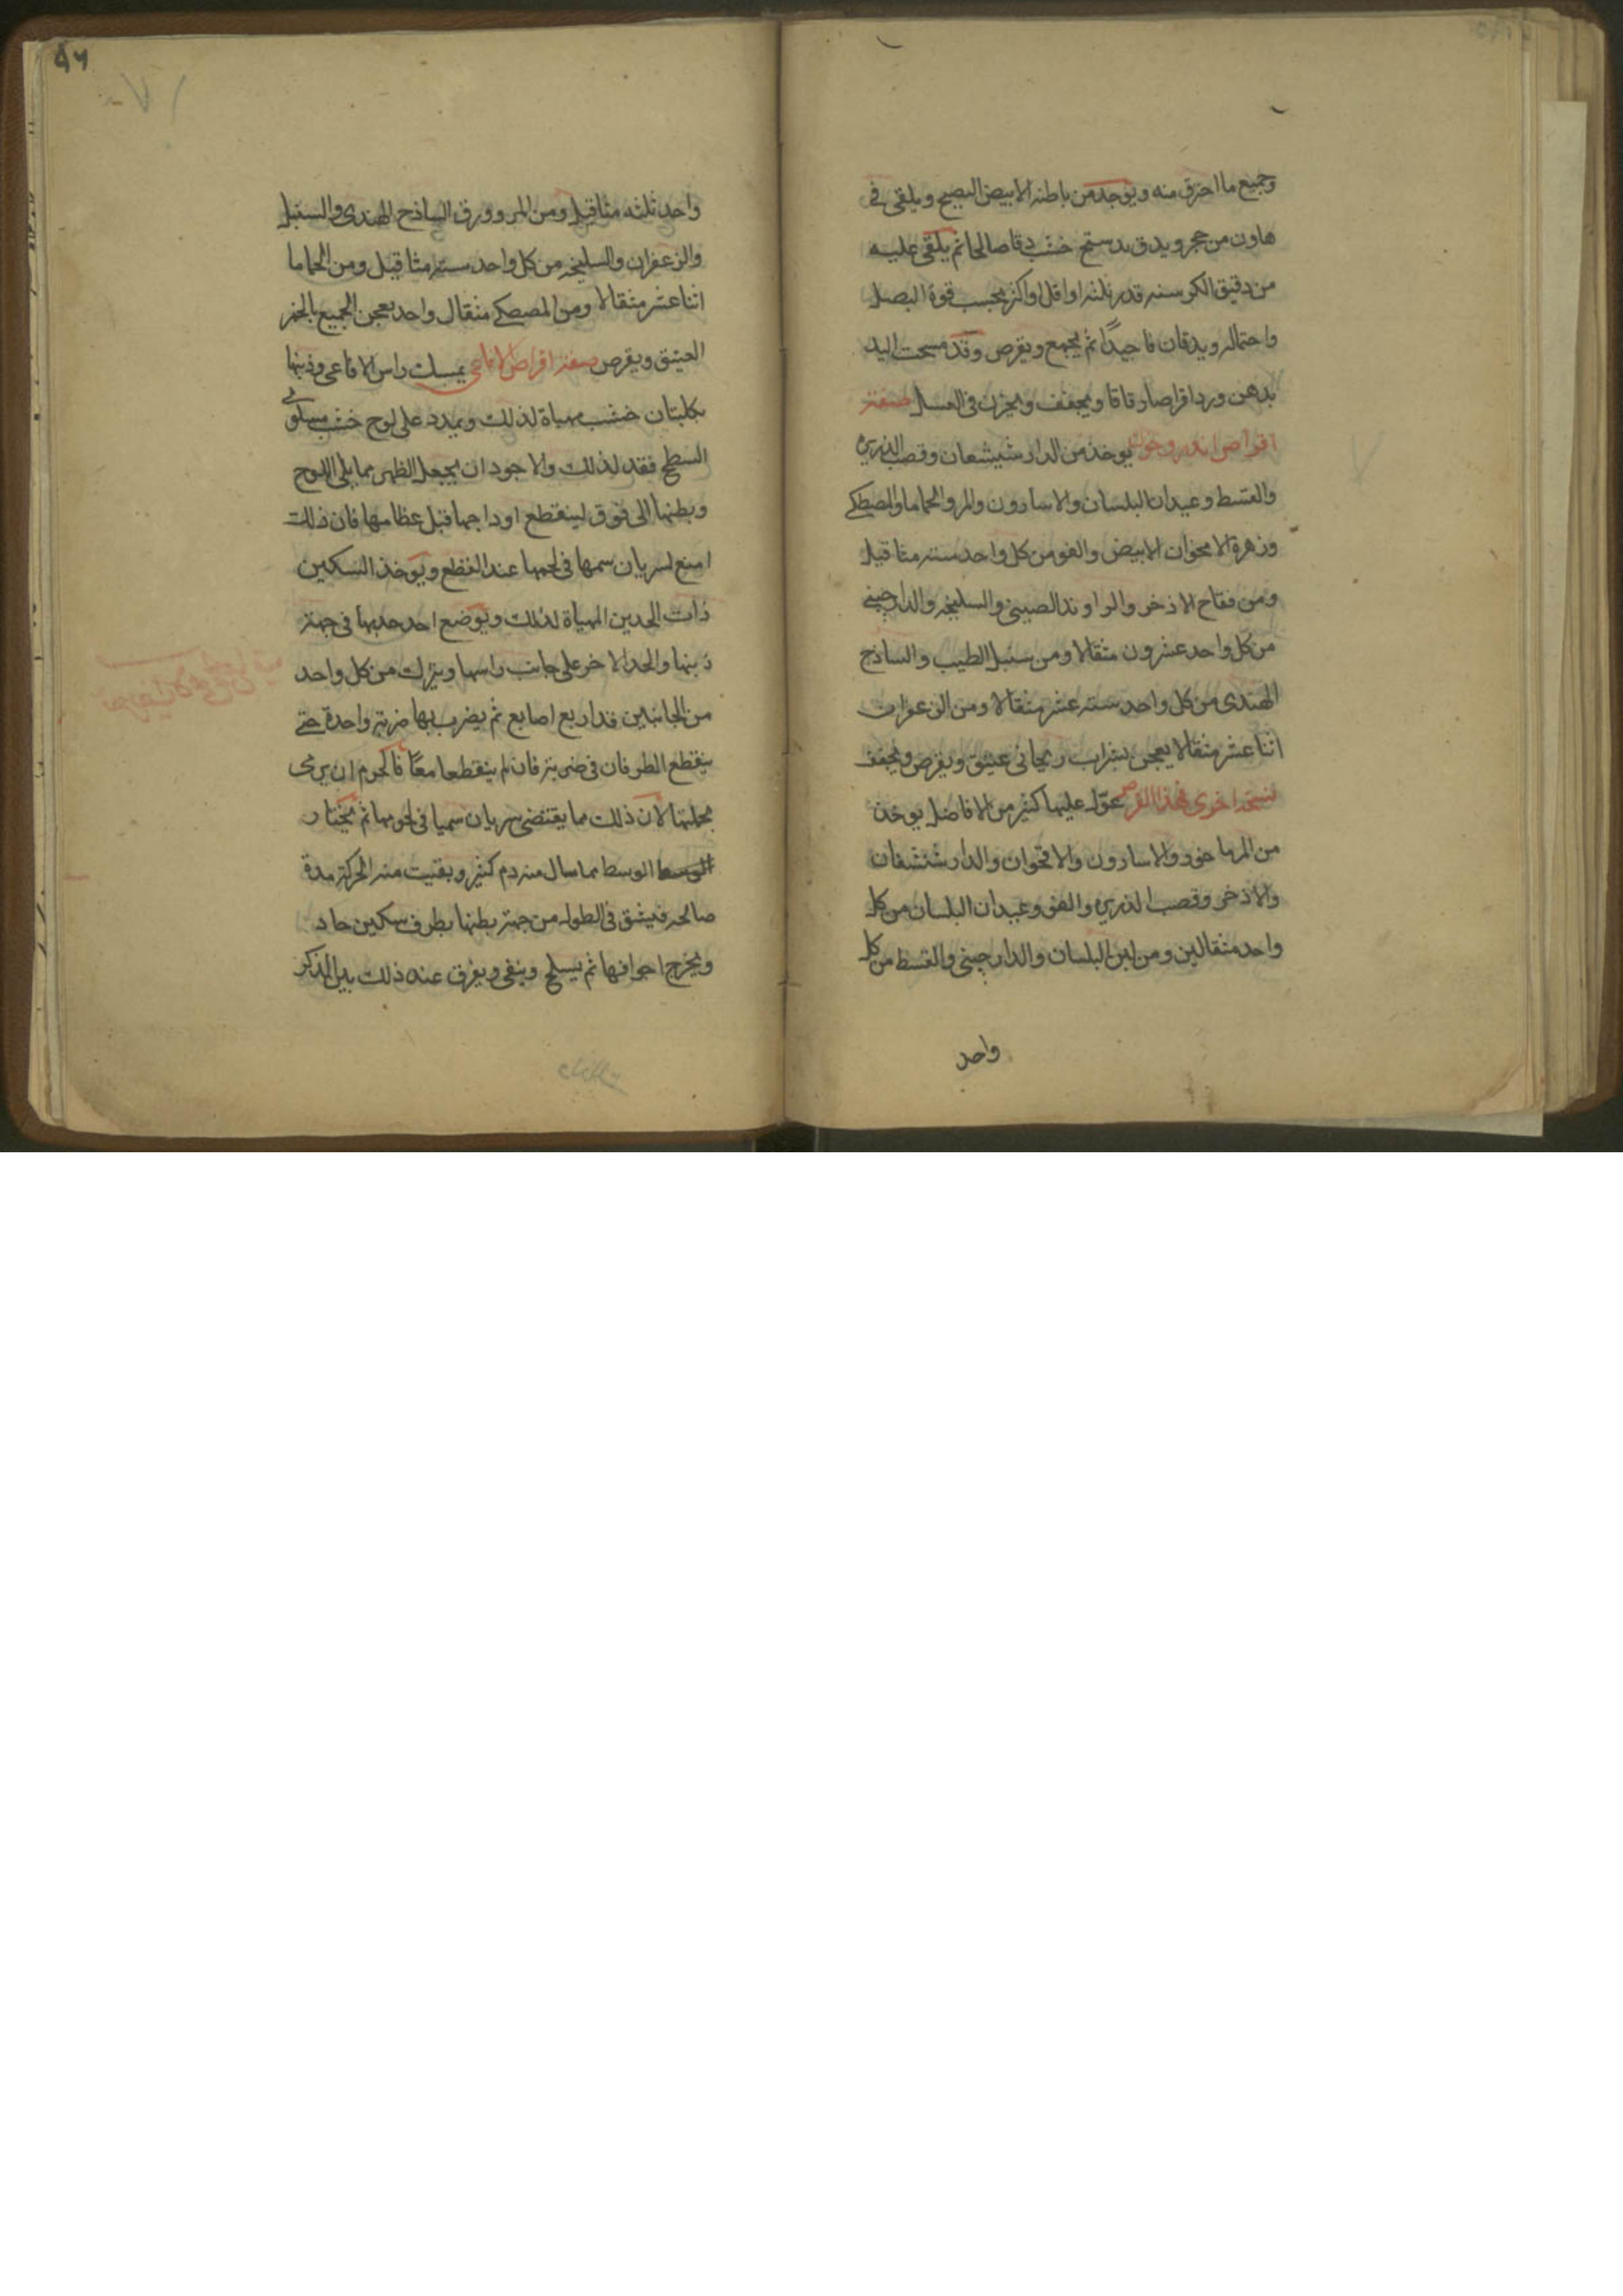 وجميع ما احترق منه ويوخذ من باطنه الابيض النضيج ويلقى فى
هاون من حجر ويدق بدستج خشب دقا صالحا ثم يلقى عليه
من دقيق الكرسنه قدر ثلثه او اقل واكثر بحسب قوة البصل
واحتماله ويدقان فا جيدًا ثم يجمع ويقرص وقد مسحت اليد
بدهن ورد اقراصا رقاقا ويجفف ويخزن فى العسل صفة
اقراص اندروخون يوخذ من الدار شيشعان وقصب الذريره
والقسط وعيدان البلسان والاسارون والمر والحماما والمصطكى
وزهرة الاقحوان الابيض والفو من كل واحد سته مثاقيل
ومن فقاح الاذخر والراوند الصينى والسليخه والدارچينى
من كل واحد عشرون مثقالا ومن سنبل الطيب والساذج
الهندى من كل واحد ستة عشر مثقالا ومن الزعفران
اثنا عشر مثقالا يعجن بشراب ريحانى عتيق ويقرص ويجفف
نسخه اخرى لهذا القرص عوّل عليها كثير من الافاضل يوخذ
من المرماخور والاسارون والاقحوان والدار شنشفان
والاذخر وقصب الذريره والفو وعيدان البلسان من كل
واحد مثقالين ومن لبن البلسان والدارچينى والقسط من كل
واحد
٩٦
واحد ثلثه مثاقيل ومن المر وورق الساذج الهندى والسنبل
والزعفران والسليخه من كل واحد سته مثاقيل ومن الحماما
اثنا عشر مثقالا ومن المصطكى مثقال واحد يعجن الجميع بالخمر
العتيق ويقرص صفة اقراص الافاعى يمسك راس الافاعى وذنبها
بكلبتان خشب مهياة لذلك ويمدد على لوح خشب مستوى
السطح فقد لذلك والاجود ان يجعل الظهر مما يلى اللوح
وبطنها الى فوق لينقطع اوداجها قبل عظامها فان ذلك
امنع لسريان سمها فى لحمها عند القطع ويوخذ السكين
ذات الحدين المهياة لذلك ويوضع احد حديها فى جهة
ذنبها والحد الاخر على جانب راسها ويترك من كل واحد
من الجانبين قدر اربع اصابع ثم يضرب بها ضربة واحدة حتى
ينقطع الطرفان فى ضربة فان لم ينقطعا معًا فالحرم ان يرمى
بجملتها لان ذلك مما يقتضى سريان سميا فى لحومها ثم يختار
الوسط الوسط مما سال منه دم كثير وبقيت منه الحركة مدة
صالحه فيشق فى الطول من جهة بطنها بطرف سكين حاد
ويخرج اجوافها ثم يسلخ وينقى ويفرق عنه ذلك بين الذكر